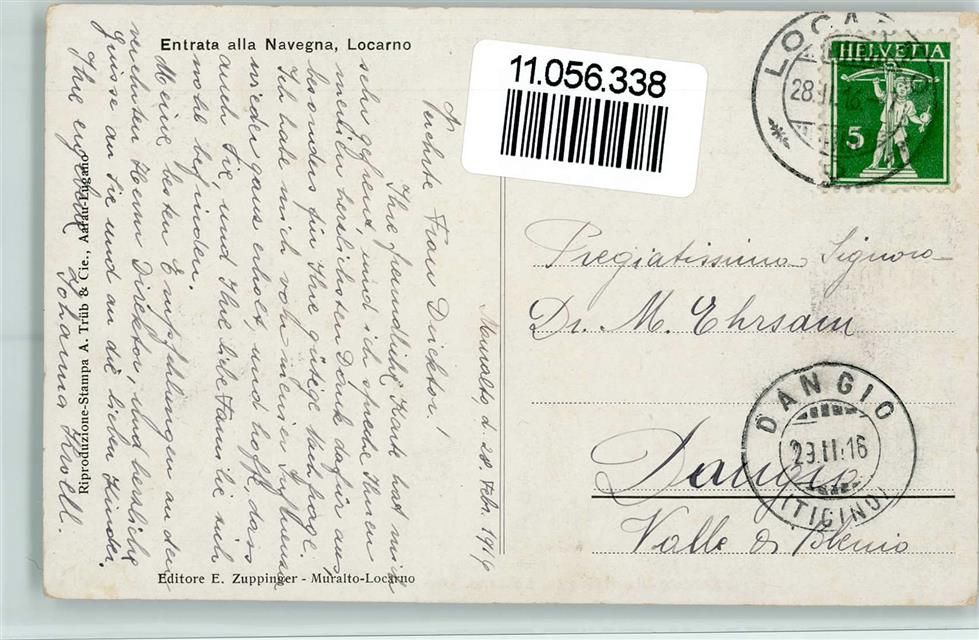 Entrata alla Navegna, Locarno
11.056.338
LOCARNO
28.II.16
HELVETIA
5
Muralto, d. 28. Feb. 1916
Verehrte Frau Direktor!
Ihre freundliche Karte hat mich
sehr gefreut, und ich spreche Ihnen
meinen herzlichsten Dank dafür aus,
besonders für Ihre gütige Nachfrage.
Ich habe mich von meiner Influenza
wieder ganz erholt, und hoffe, dass
auch Sie, und Ihre liebe Familie sich
wohl befinden.
Meine besten Empfehlungen an den
verehrten Herrn Direktor, und herzliche
Grüsse an Sie und an die lieben Kinder.
Ihre ergebene
Johanna Knoell.
Pregiatissima Signora
Dr. M. Ehrsam
Dangio
Valle di Blenio
DANGIO
29.II.16
(TICINO)
Riproduzione-Stampa A. Trüb & Cie., Aarau-Lugano
Editore E. Zuppinger - Muralto-Locarno